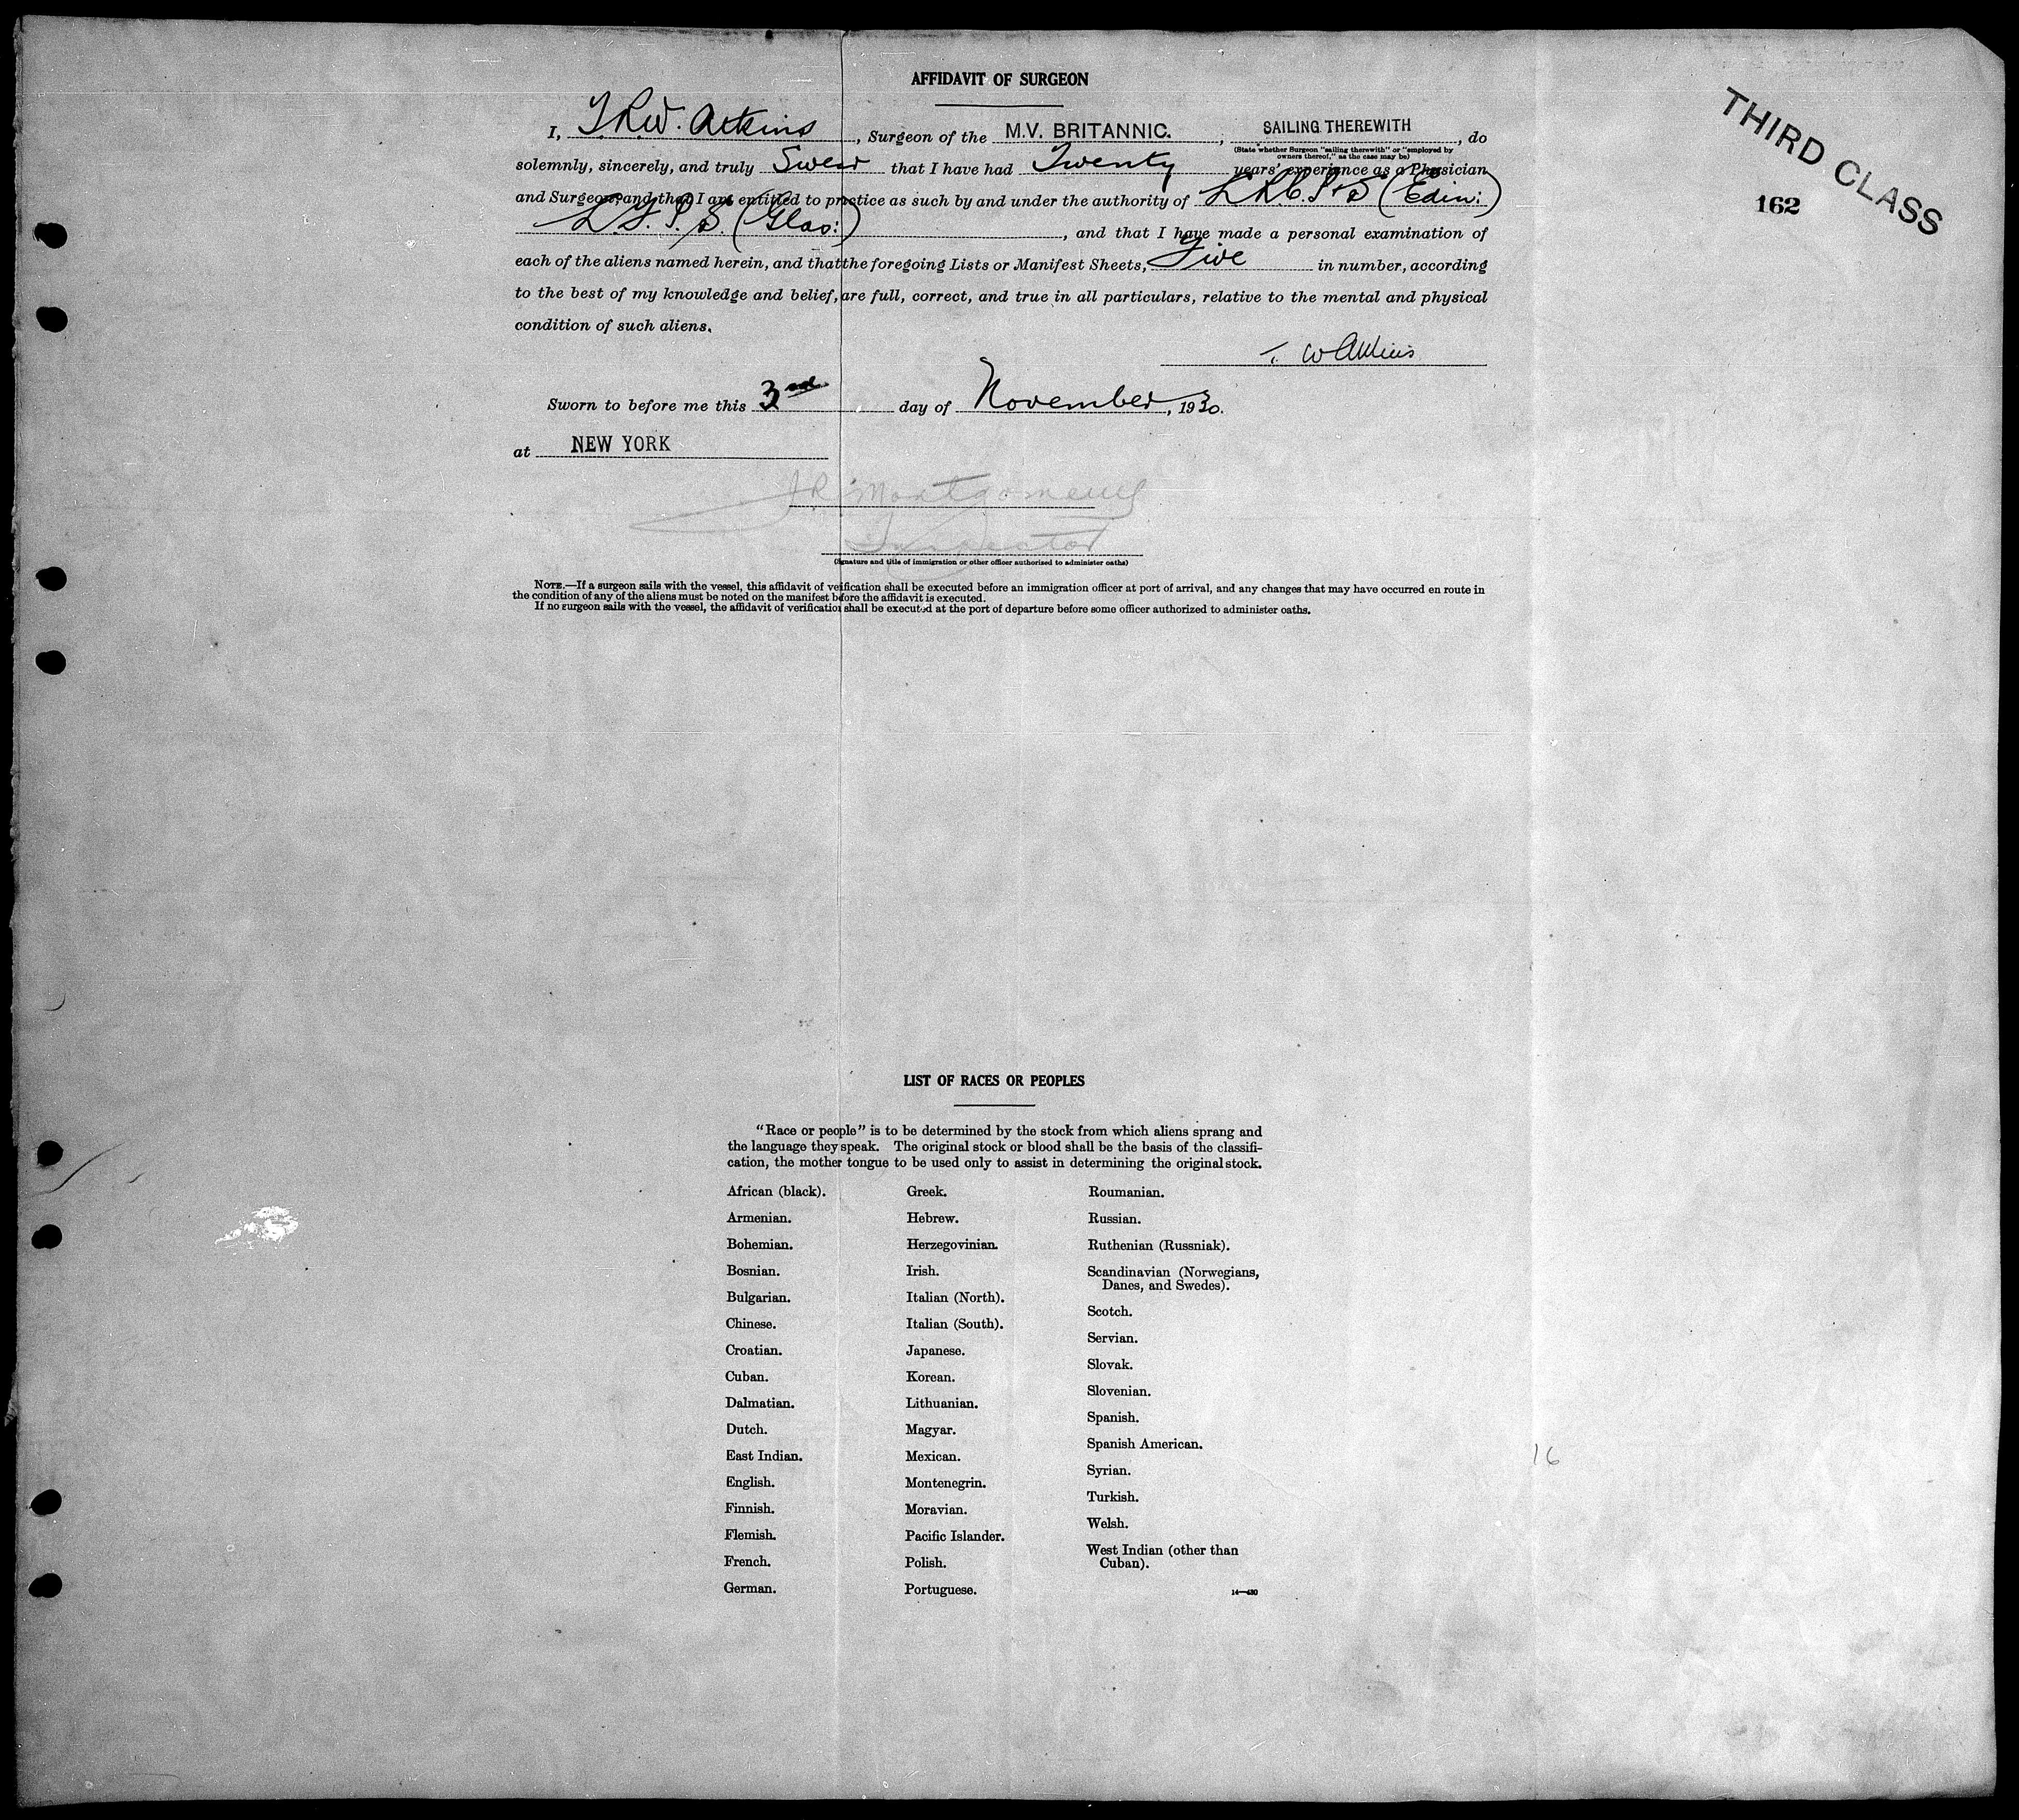 AFFIDAVIT OF SURGEON
THIRD CLASS
162
I, T.R.W. Atkins, Surgeon of the M.V. BRITANNIC., SAILING THEREWITH, do
(State whether Surgeon "sailing therewith" or "employed by
owners thereof," as the case may be)
solemnly, sincerely, and truly Swear that I have had Twenty years' experience as a Physician
and Surgeon, and that I am entitled to practice as such by and under the authority of L.R.C.P.&S (Edin:)
L.F.P.S. (Glas:), and that I have made a personal examination of
each of the aliens named herein, and that the foregoing Lists or Manifest Sheets, Five in number, according
to the best of my knowledge and belief, are full, correct, and true in all particulars, relative to the mental and physical
condition of such aliens.
W Atkins
Sworn to before me this 3rd day of November, 1930.
at NEW YORK
J R Montgomery
Inspector
(Signature and title of immigration or other officer authorized to administer oaths)
NOTE.—If a surgeon sails with the vessel, this affidavit of verification shall be executed before an immigration officer at port of arrival, and any changes that may have occurred en route in
the condition of any of the aliens must be noted on the manifest before the affidavit is executed.
If no surgeon sails with the vessel, the affidavit of verification shall be executed at the port of departure before some officer authorized to administer oaths.
LIST OF RACES OR PEOPLES
"Race or people" is to be determined by the stock from which aliens sprang and
the language they speak. The original stock or blood shall be the basis of the classifi-
cation, the mother tongue to be used only to assist in determining the original stock.
African (black).
Armenian.
Bohemian.
Bosnian.
Bulgarian.
Chinese.
Croatian.
Cuban.
Dalmatian.
Dutch.
East Indian.
English.
Finnish.
Flemish.
French.
German.
Greek.
Hebrew.
Herzegovinian.
Irish.
Italian (North).
Italian (South).
Japanese.
Korean.
Lithuanian.
Magyar.
Mexican.
Montenegrin.
Moravian.
Pacific Islander.
Polish.
Portuguese.
Roumanian.
Russian.
Ruthenian (Russniak).
Scandinavian (Norwegians,
Danes, and Swedes).
Scotch.
Servian.
Slovak.
Slovenian.
Spanish.
Spanish American.
Syrian.
Turkish.
Welsh.
West Indian (other than
Cuban).
16